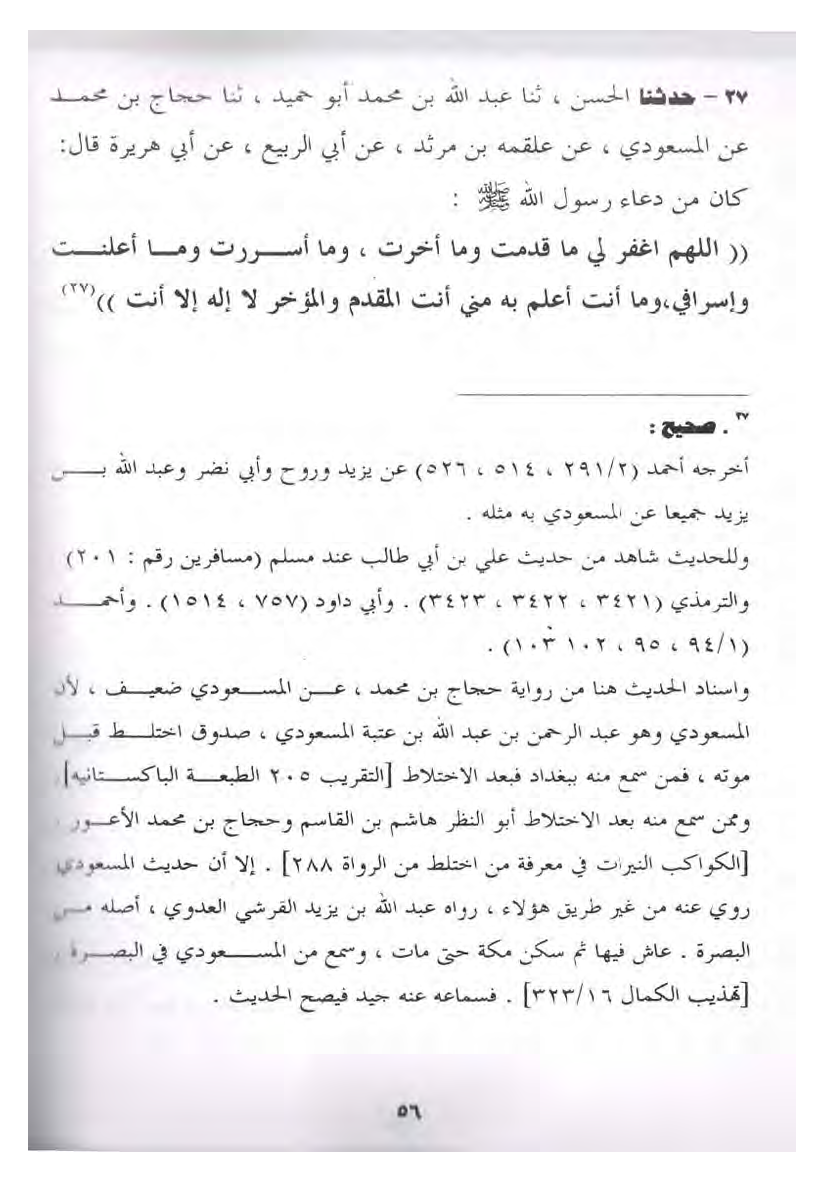 ٢٧ – حدثنا الحسن ، ثنا عبد الله بن محمد أبو حميد ، ثنا حجاج بن محمد
عن المسعودي ، عن علقمه بن مرثد ، عن أبي الربيع ، عن أبي هريرة قال:
كان من دعاء رسول الله ﷺ :
(( اللهم اغفر لي ما قدمت وما أخرت ، وما أسررت وما أعلنت
وإسرافي،وما أنت أعلم به مني أنت المقدم والمؤخر لا إله إلا أنت ))(٢٧)
٢٧ . صحيح :
أخرجه أحمد (٢٩١/٢ ، ٥١٤ ، ٥٢٦) عن يزيد وروح وأبي نضر وعبد الله بس
يزيد جميعا عن المسعودي به مثله .
وللحديث شاهد من حديث علي بن أبي طالب عند مسلم (مسافرين رقم : ٢٠١)
والترمذي (٣٤٢١ ، ٣٤٢٢ ، ٣٤٢٣) . وأبي داود (٧٥٧ ، ١٥١٤) . وأحمد
(٩٤/١ ، ٩٥ ، ١٠٢ ١٠٣) .
واسناد الحديث هنا من رواية حجاج بن محمد ، عن المسعودي ضعيف ، لأن
المسعودي وهو عبد الرحمن بن عبد الله بن عتبة المسعودي ، صدوق اختلط قبل
موته ، فمن سمع منه ببغداد فبعد الاختلاط [التقريب ٢٠٥ الطبعة الباكستانيه].
وممن سمع منه بعد الاختلاط أبو النظر هاشم بن القاسم وحجاج بن محمد الأعور .
[الكواكب النيرات في معرفة من اختلط من الرواة ٢٨٨] . إلا أن حديث المسعودي
روي عنه من غير طريق هؤلاء ، رواه عبد الله بن يزيد القرشي العدوي ، أصله من
البصرة . عاش فيها ثم سكن مكة حتى مات ، وسمع من المسعودي في البصرة .
[تهذيب الكمال ٣٢٣/١٦] . فسماعه عنه جيد فيصح الحديث .
٥٦